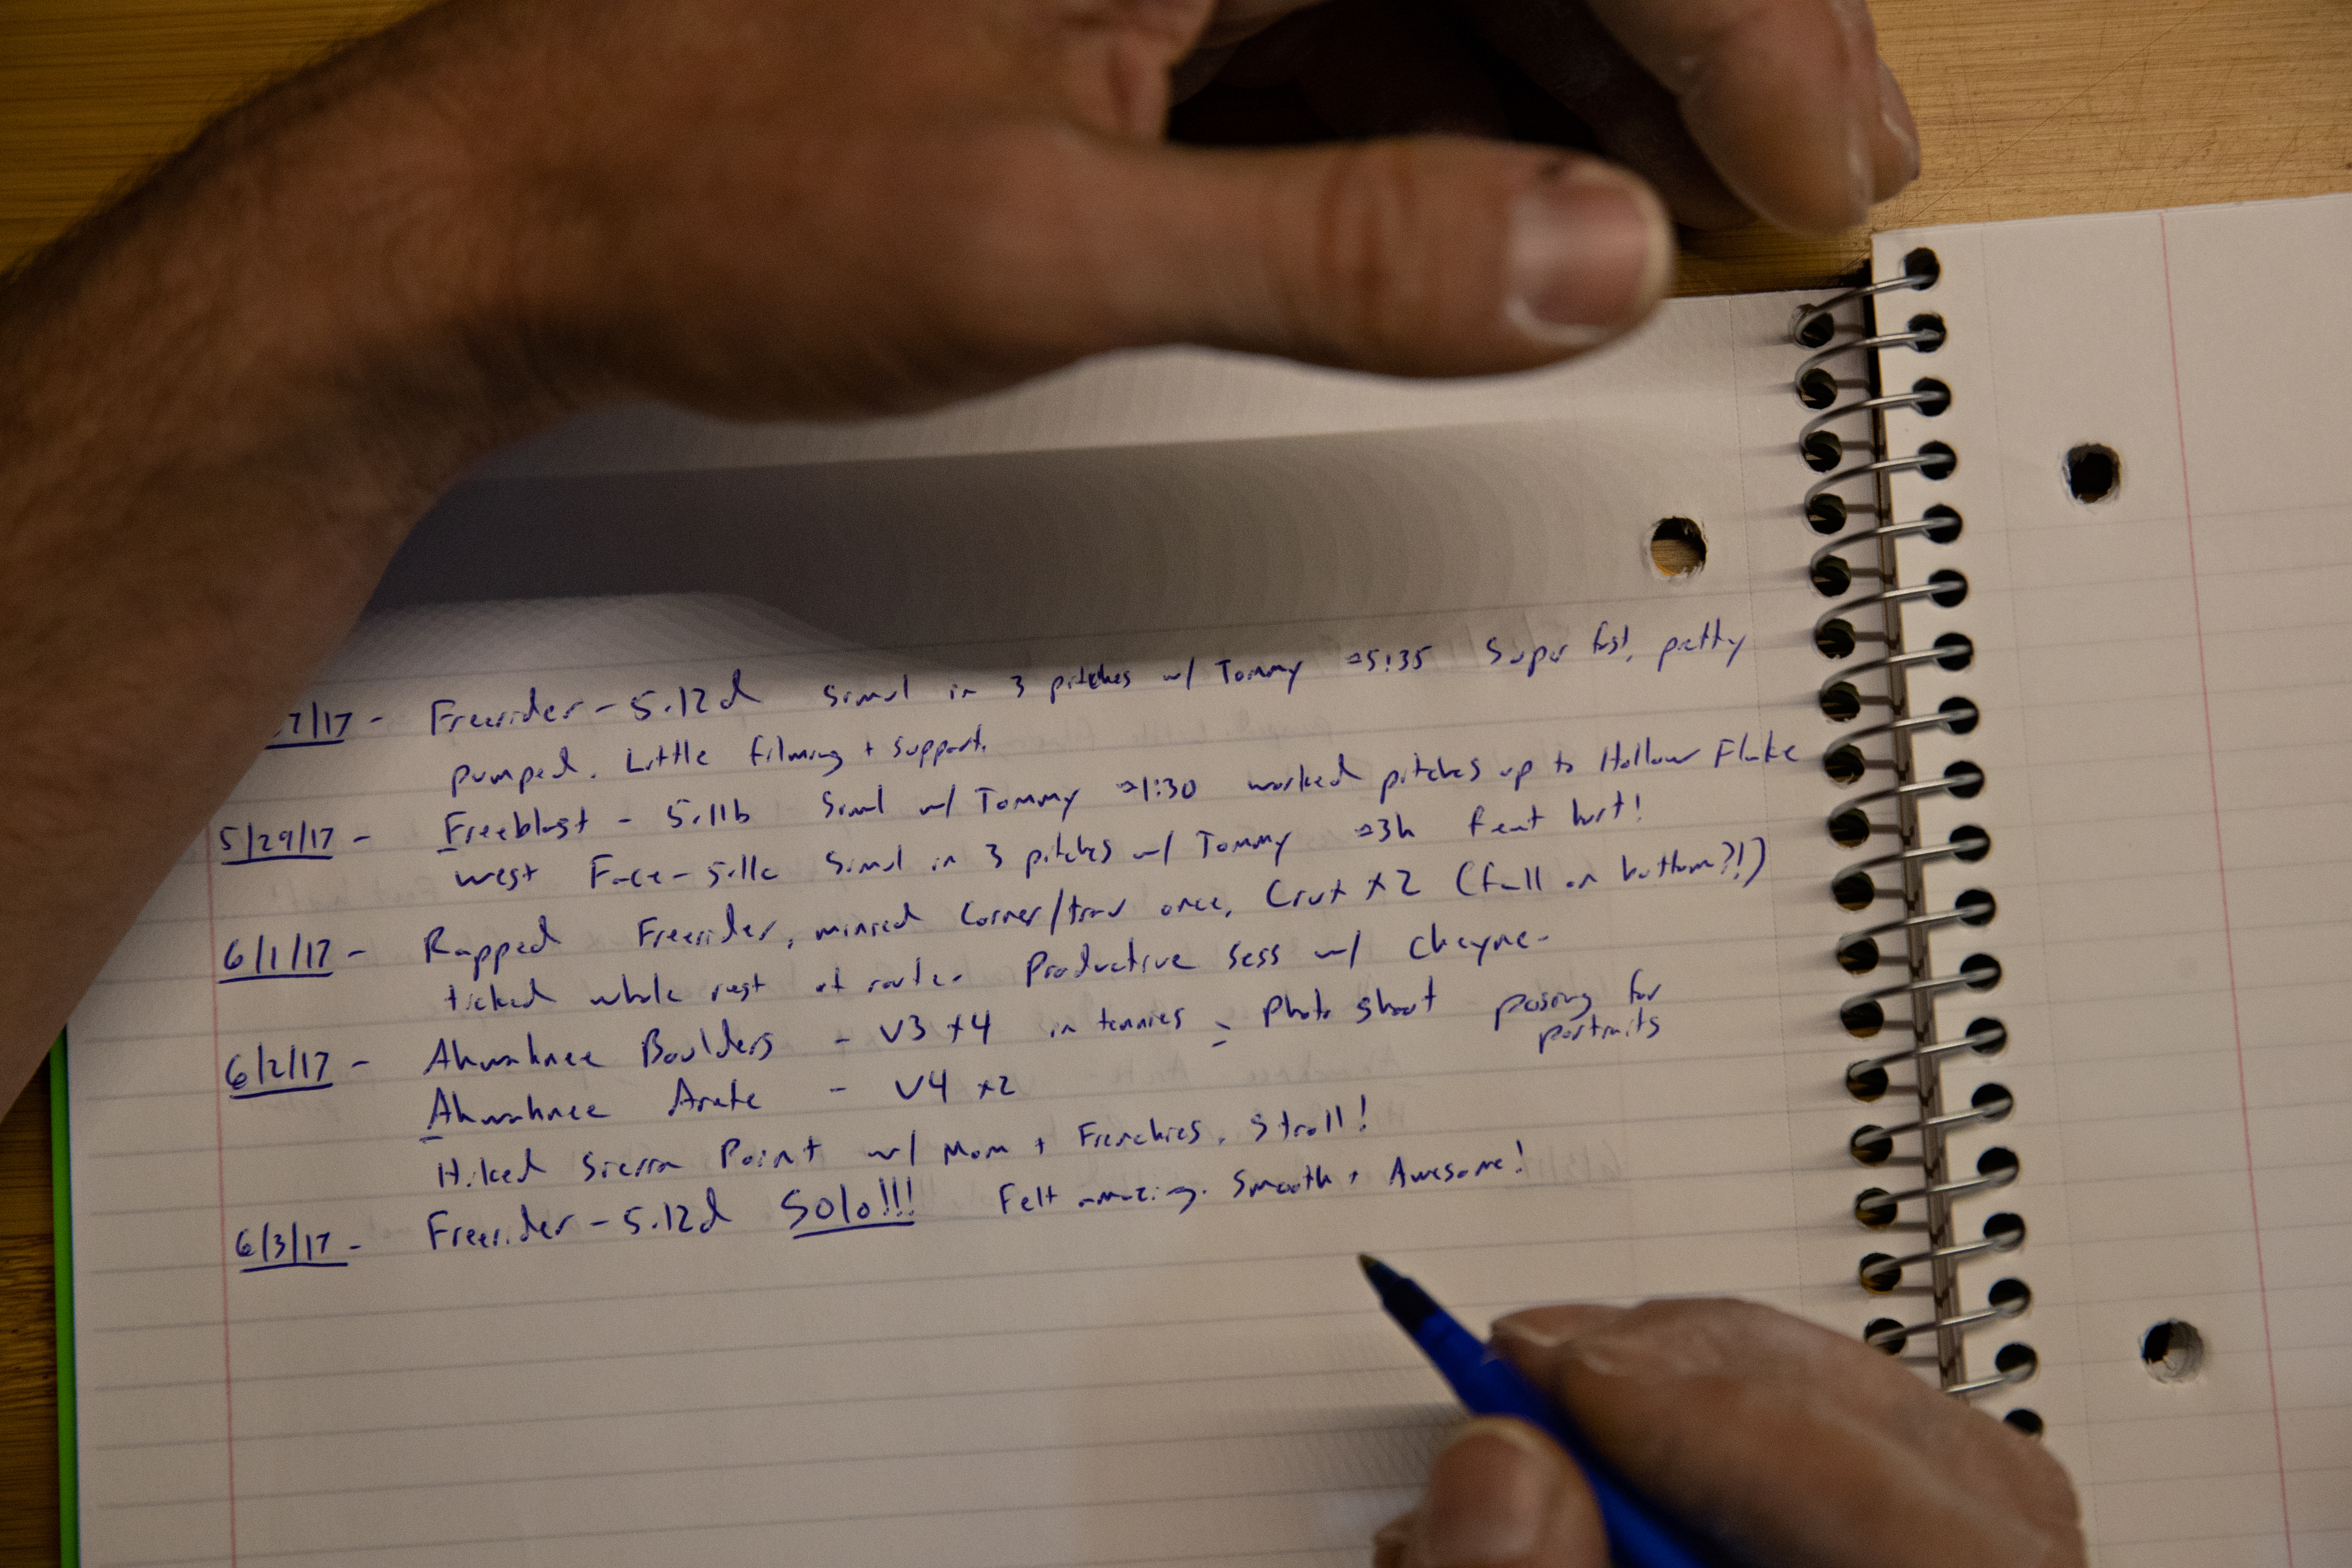 7/17 - Freerider - 5.12d Simul in 3 pitches w/ Tommy ≈5:35 Super fast, pretty
pumped. Little filming + support.
5/29/17 - Freeblast - 5.11b Simul w/ Tommy ≈1:30 worked pitches up to Hollow Flake
West Face - 5.11c Simul in 3 pitches w/ Tommy ≈3h feet hurt!
6/1/17 - Rapped Freerider, minied Corner/trav once, Crux x2 (fall on bottom?!)
ticked whole rest of route. Productive sess w/ Cheyne.
6/2/17 - Ahwahnee Boulders - V3 x4 in tennies = Photo shoot posing for
portraits
Ahwahnee Arete - V4 x2
Hiked Sierra Point w/ Mom + Frenchies. Stroll!
6/3/17 - Freerider - 5.12d Solo!!! Felt amazing. Smooth + Awesome!